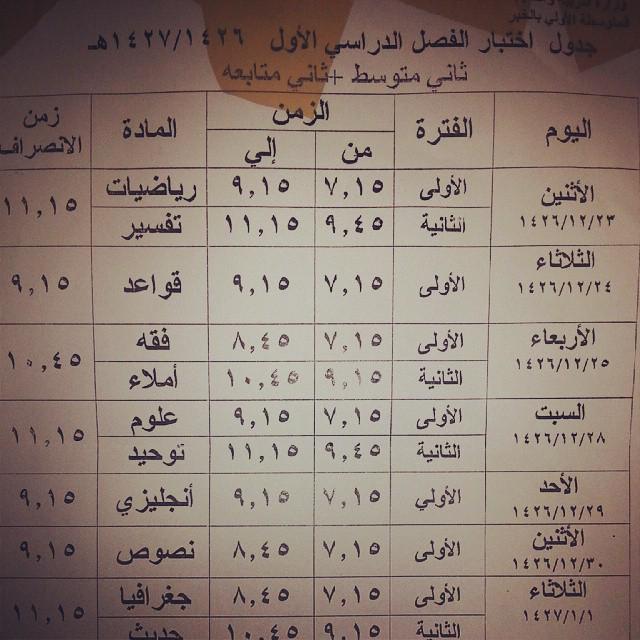 المتوسطة الأولي بالخبر
جدول اختبار الفصل الدراسي الأول ١٤٢٧/١٤٢٦هـ
ثاني متوسط +ثاني متابعه
اليوم الفترة الزمن المادة زمن الانصراف
من إلي
الأثنين ١٤٢٦/١٢/٢٣ الأولى ٧,١٥ ٩,١٥ رياضيات ١١,١٥
الثانية ٩,٤٥ ١١,١٥ تفسير
الثلاثاء ١٤٢٦/١٢/٢٤ الأولى ٧,١٥ ٩,١٥ قواعد ٩,١٥
الأربعاء ١٤٢٦/١٢/٢٥ الأولى ٧,١٥ ٨,٤٥ فقه ١٠,٤٥
الثانية ٩,١٥ ١٠,٤٥ أملاء
السبت ١٤٢٦/١٢/٢٨ الأولى ٧,١٥ ٩,١٥ علوم ١١,١٥
الثانية ٩,٤٥ ١١,١٥ توحيد
الأحد ١٤٢٦/١٢/٢٩ الأولي ٧,١٥ ٩,١٥ أنجليزي ٩,١٥
الأثنين ١٤٢٦/١٢/٣٠ الأولى ٧,١٥ ٨,٤٥ نصوص ٩,١٥
الثلاثاء ١٤٢٧/١/١ الأولى ٧,١٥ ٨,٤٥ جغرافيا ١١,١٥
الثانية ٩,١٥ ١٠,٤٥ حديث